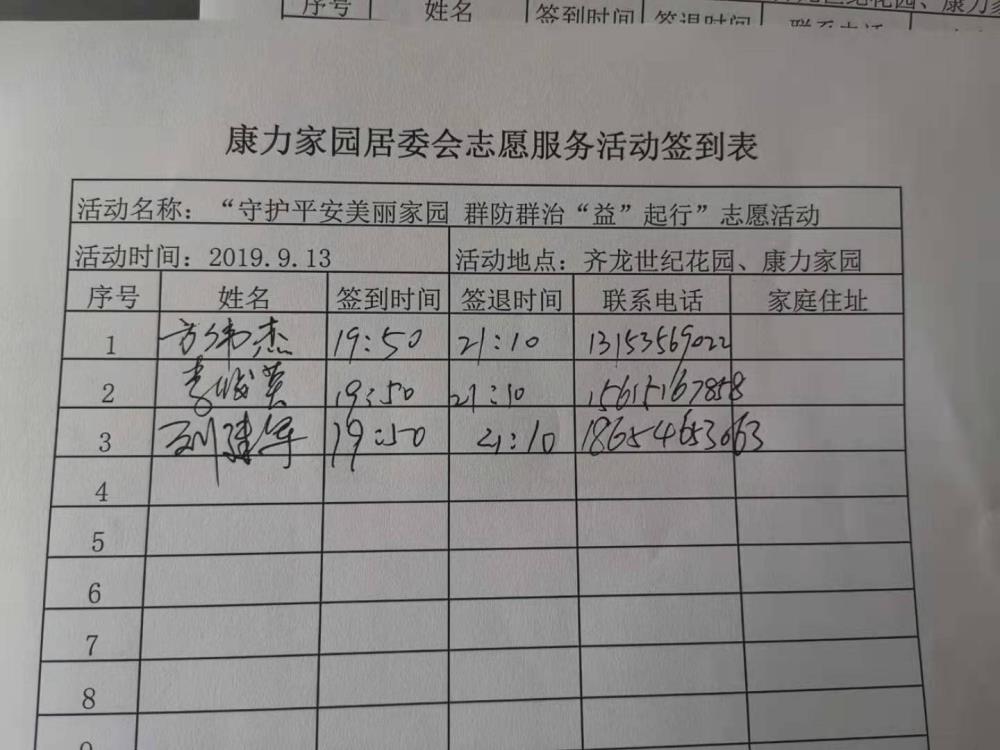 序号 姓名 签到时间 签退时间 联系电话
康力家园居委会志愿服务活动签到表
活动名称：“守护平安美丽家园 群防群治“益”起行”志愿活动
活动时间：2019.9.13 活动地点：齐龙世纪花园、康力家园
序号 姓名 签到时间 签退时间 联系电话 家庭住址
1 方伟杰 19:50 21:10 13153569022
2 李俊英 19:50 21:10 15615167858
3 刘建军 19:50 21:10 18654653063
4
5
6
7
8